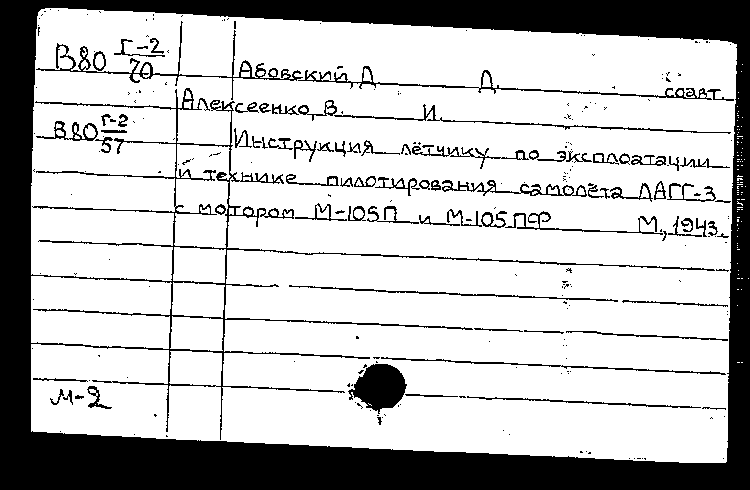 В80 Г-2/70 Абовский, Д. Д. соавт.
Алексеенко, В. И.
В80 Г-2/57 Инструкция лётчику по эксплоатации
и технике пилотирования самолёта ЛАГГ-3
с мотором М-105П и М-105ПФ М., 1943.
м-2